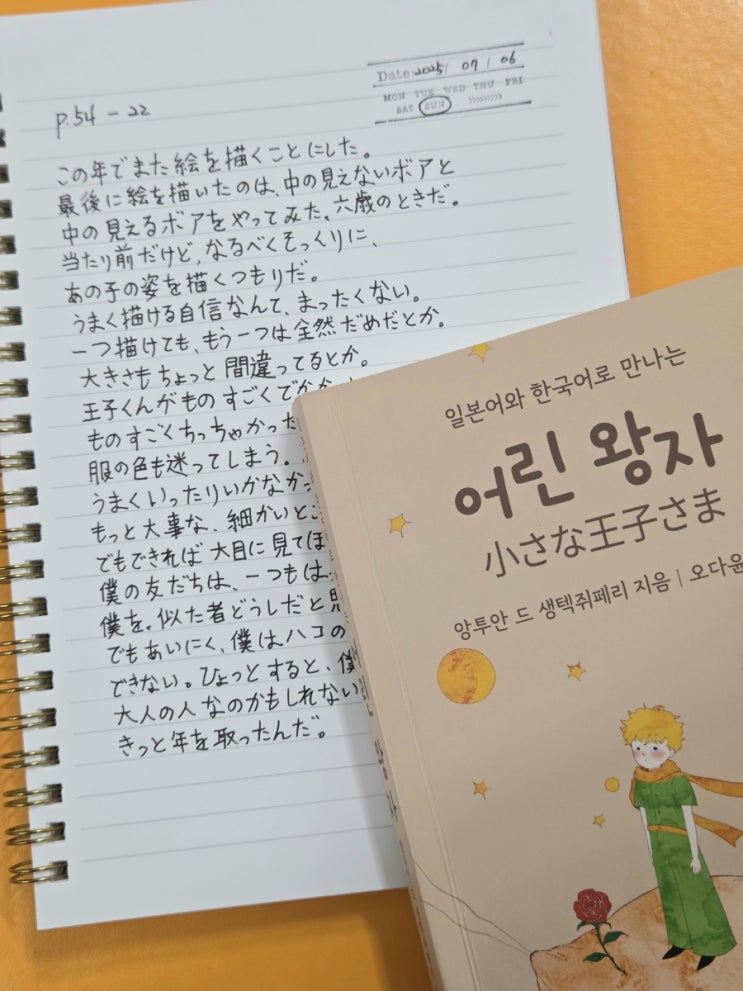 Date: 2025/ 07 / 06
MON TUE WED THU FRI
SAT SUN >>>>>>>>>
p.54 - 22
この年でまた絵を描くことにした。
最後に絵を描いたのは、中の見えないボアと
中の見えるボアをやってみた、六歳のときだ。
当たり前だけど、なるべくそっくりに、
あの子の姿を描くつもりだ。
うまく描ける自信なんて、まったくない。
一つ描けても、もう一つは全然だめだとか。
大きさもちょっと間違ってるとか。
王子くんがものすごくでか
ものすごくちっちゃかった
服の色も迷ってしまう。
うまくいったりいかなか
もっと大事な、細かいとこ
でもできれば大目に見てほ
僕の友だちは、一つもは
僕を。似た者どうしだと思
でもあいにく、僕はハコの
できない。ひょっとすると、僕
大人の人なのかもしれない
きっと年を取ったんだ。
일본어와 한국어로 만나는
어린 왕자
小さな王子さま
앙투안 드 생텍쥐페리 지음 | 오다윤